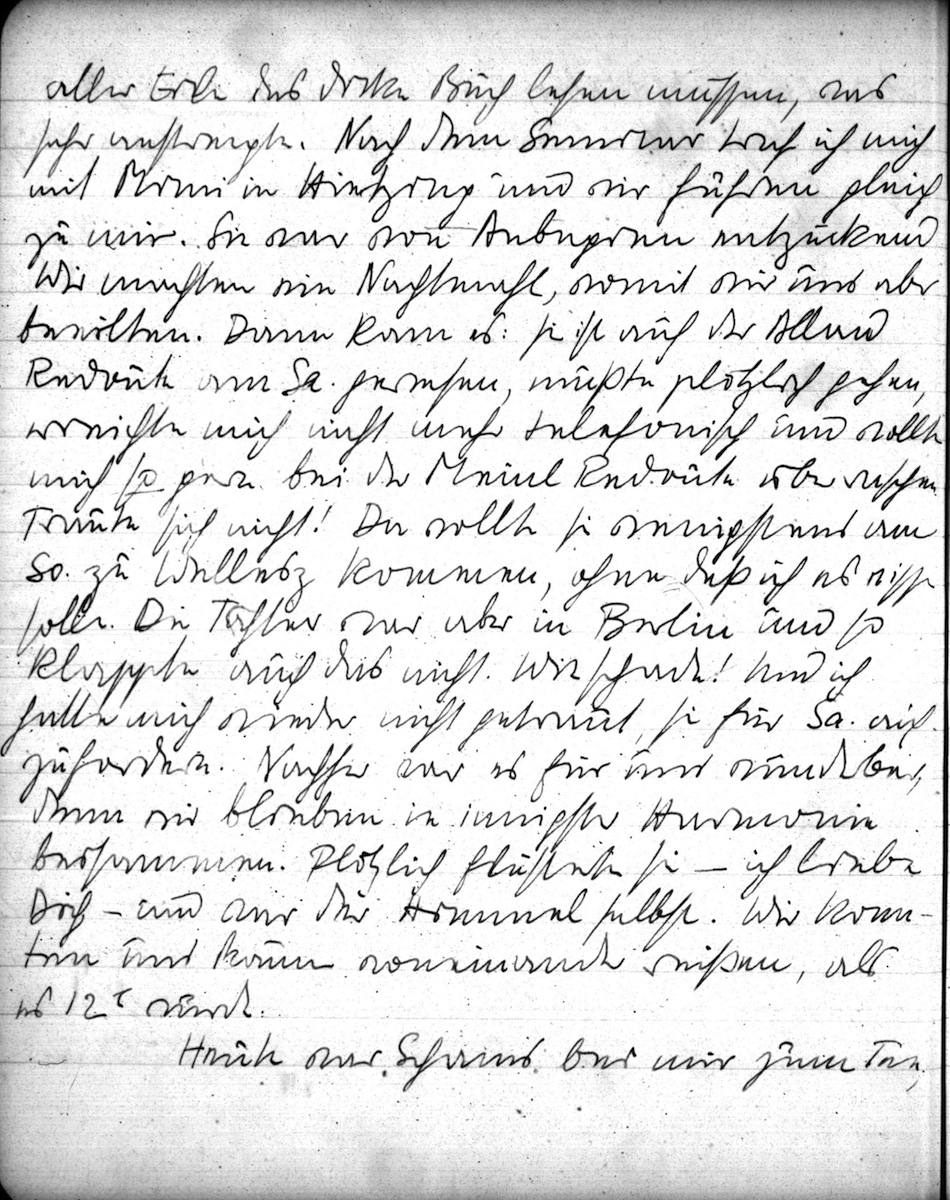 aller Eile das dicke Buch lesen müssen, was
sehr anstrengte. Nach dem Seminar traf ich mich
mit Mimi in Hietzing und wir fuhren gleich
zu mir. Sie war von Anbeginn entzückend
Wir machten ein Nachtmahl, womit wir uns aber
beeilten. Dann kam es: sie ist auch der Alland
Redoute am Sa. gewesen, mußte plötzlich gehen,
erreichte mich nicht mehr telefonisch und wollte
mich so gern bei der Meinl Redoute überraschen
Traute sich nicht! Da wollte sie wenigstens am
So. zu Wellesz kommen, ohne daß ich es wisse
solle. Die Tochter war aber in Berlin und so
klappte auch das nicht. Wie schade! Und ich
hatte mich wieder nicht getraut, sie für Sa. auf
zufordern. Nachher war es für uns wunderbar,
denn wir blieben in innigster Harmonie
beisammen. Plötzlich flüsterte sie – ich liebe
Dich – und war der Himmel selbst. Wir konn-
ten uns kaum voneinander reißen, als
es 12ʰ wurde.
Heute war Schams bei mir zum Tee,